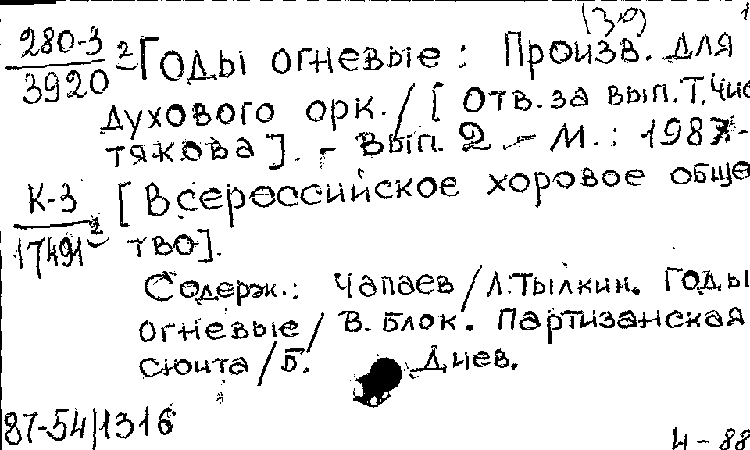 (30) 1
280-3 2 Годы огневые : Произв. для
3920 духового орк. / [Отв. за вып. Т. Чис
тякова]. - Вып. 2 - М. : 1987-
К-3 [Всероссийское хоровое обще
17491 2 тво].
Содерж.: Чапаев / Л. Тылкин. Годы
огневые / В. Блок. Партизанская
сюита / Б. Диев.
87-54/1316
4-88